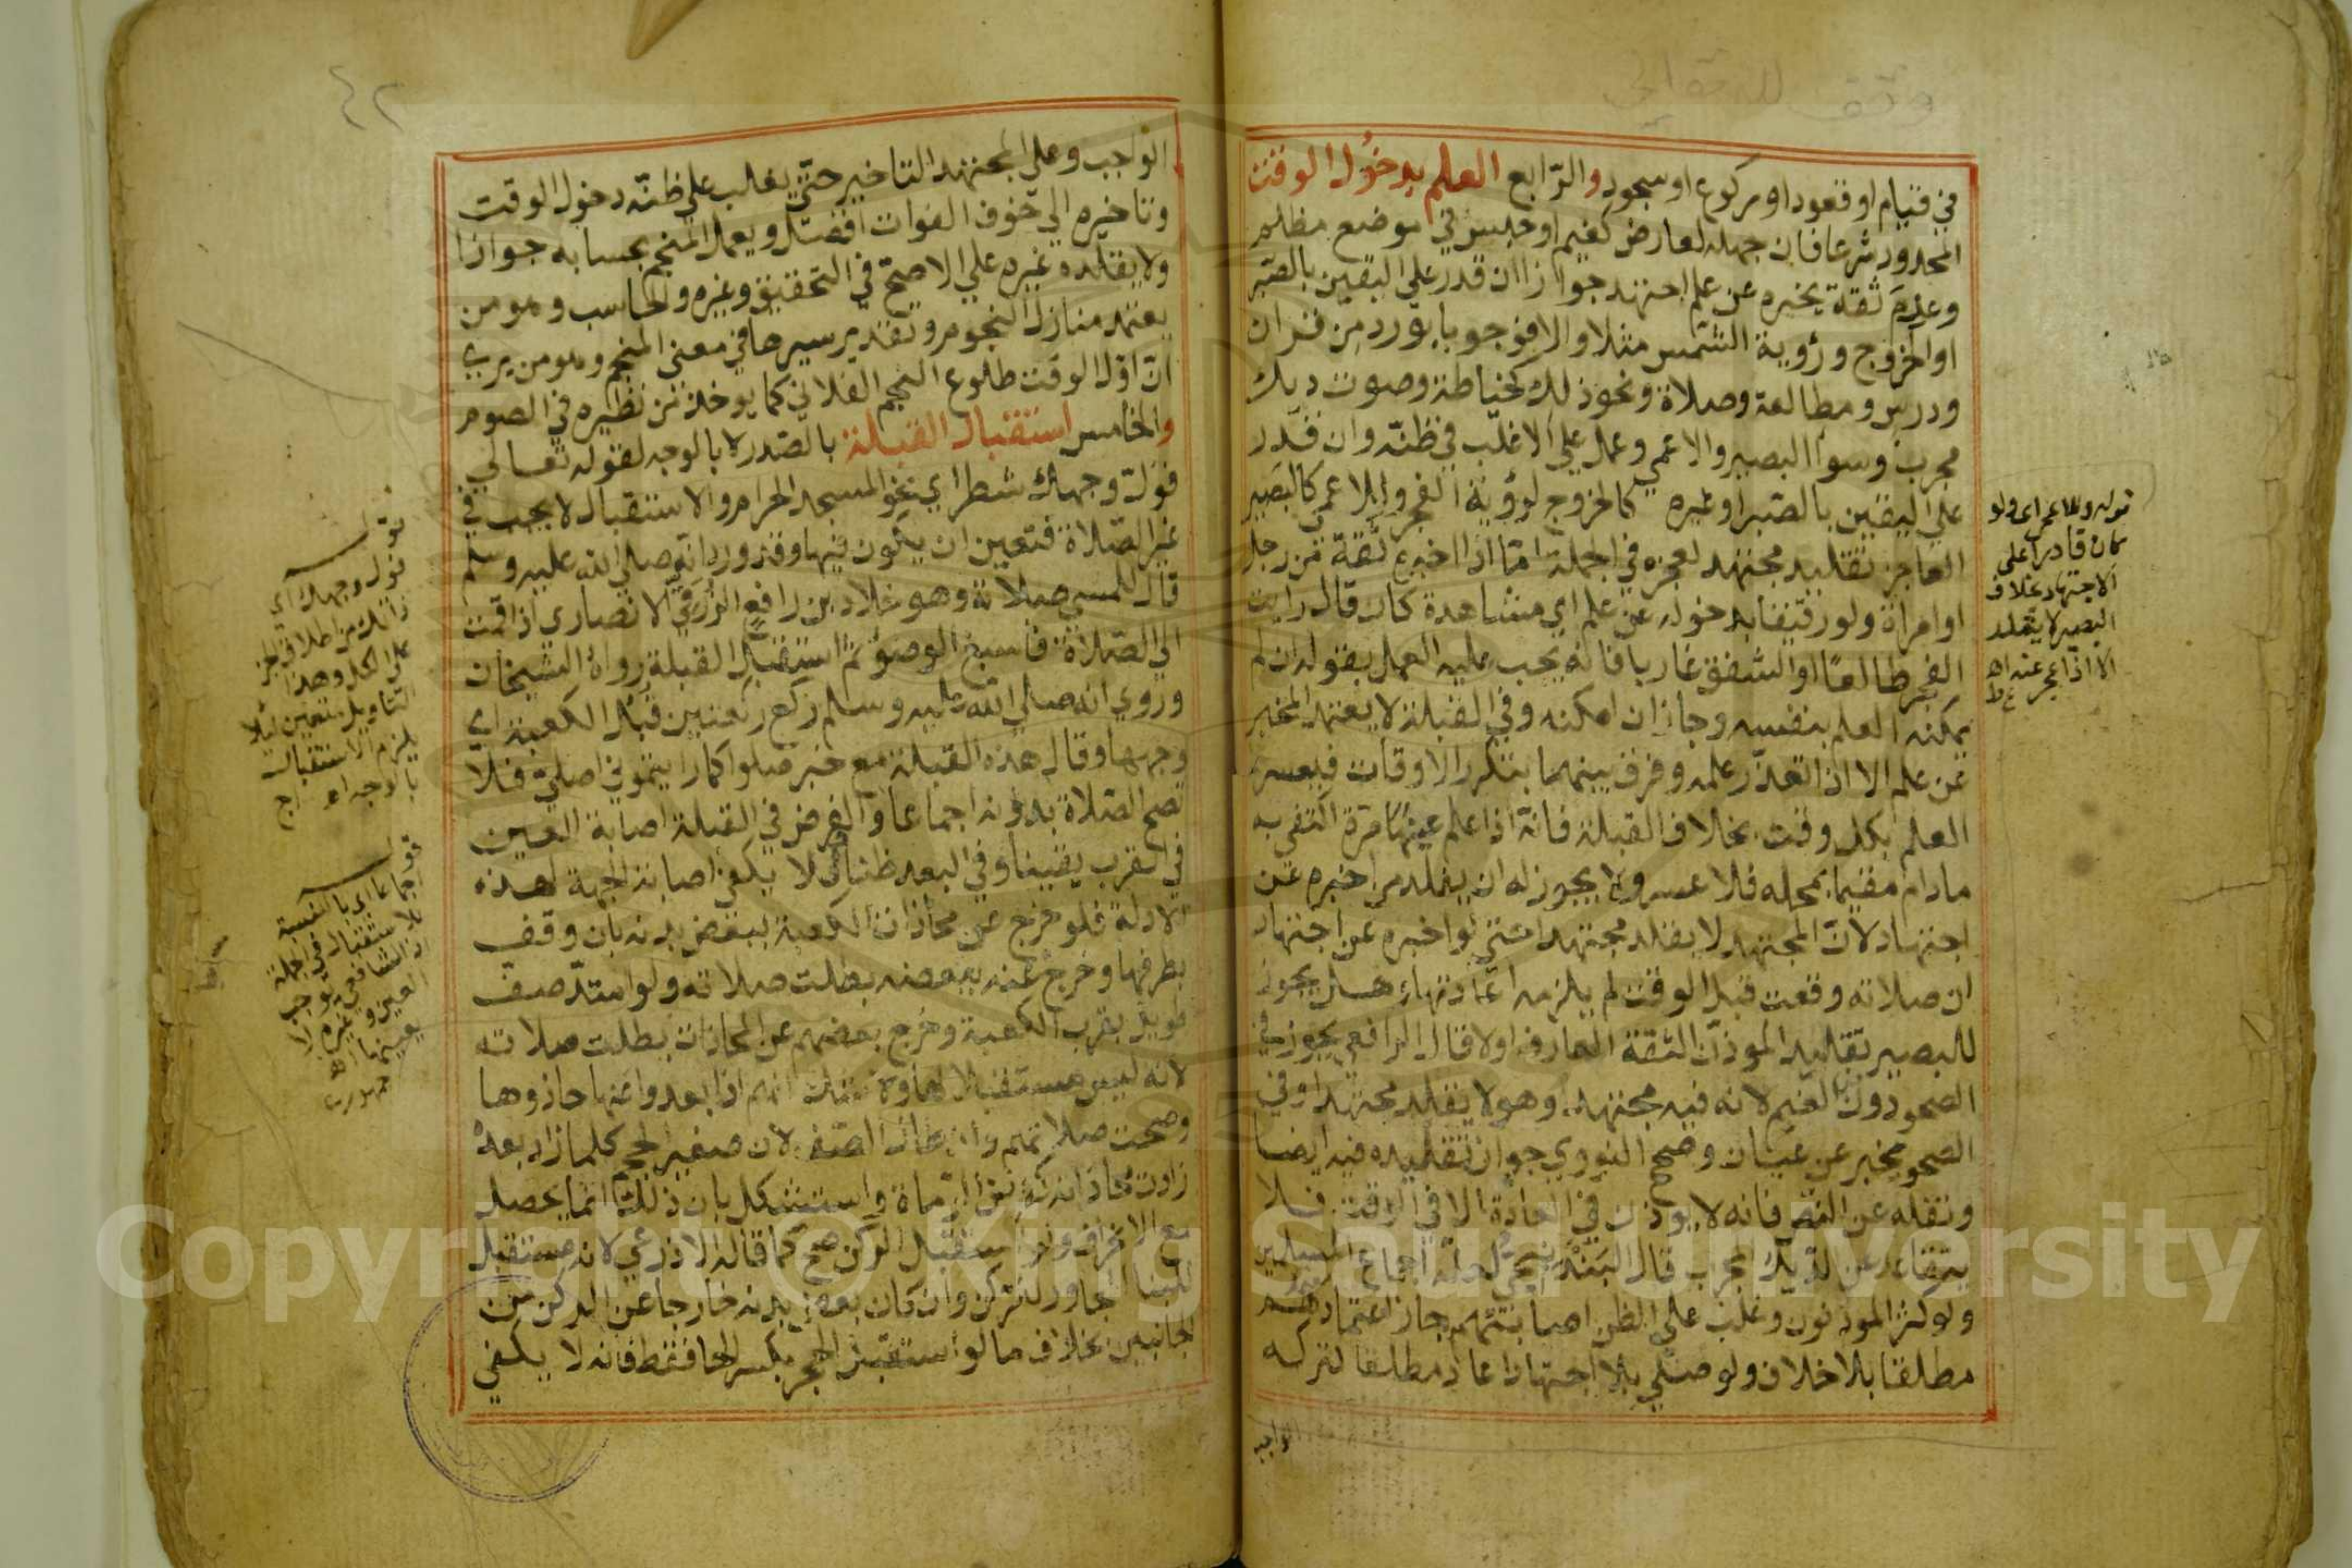 في قيام او قعود او ركوع او سجود والرابع العلم بدخول الوقت
المحدود شرعا فان جهله لعارض كغيم او حبس في موضع مظلم
وعدم ثقة يخبره عن علم اجتهد جوازا ان قدر على اليقين بالصبر
او الخروج ورؤية الشمس مثلا والا فوجوبا بورد من قران
ودرس ومطالعة وصلاة ونحو ذلك كخياطة وصوت ديك
مجرب وسوأ البصير والاعمي وعمل علي الاغلب في ظنه وان قدر
علي اليقين بالصبر او غيره كالخروج لرؤية الفجر وللاعمي كالبصير
العاجز تقليد مجتهد لعجزه في الجملة امّا اذا اخبره ثقة من رجل
او امراة ولو رقيقا بدخوله عن علم اي مشاهدة كان قال رايت
الفجر طالعًا او الشفق غاربا فانه يجب عليه العمل بقوله ان لم
يمكنه العلم بنفسه وجاز ان امكنه وفي القبلة لا يعتمد المخبر
عن علم الا اذا تعذر علمه وفرق بينهما بتكرر الاوقات فيعسر
العلم بكل وقت بخلاف القبلة فانه اذا علم عينها مرة اكتفي به
مادام مقيما بمحله فلا عسر ولا يجوز له ان يقلد من اخبره عن
اجتهاد لان المجتهد لا يقلد مجتهدا حتي لو اخبره عن اجتهاد
ان صلاته وقعت قبل الوقت لم يلزمه اعادتها وهل يجوز
للبصير تقليد الموذن الثقة العارف اولا قال الرافعي يجوز في
الصحو دون الغيم لانه فيه مجتهد وهو لا يقلد مجتهدا وفي
الصحو مخبر عن عيان وصحح النووي جواز تقليده فيه ايضا
ونقله عن النص فانه لا يوذن في العادة الا في الوقت فلا
يتقاعد عن الديك المجرب قال البندنيجي لعله اجماع المسلمين
ولو كثر الموذنون وغلب علي الظن اصابتهم جاز اعتمادهم
مطلقا بلا خلاف ولو صلي بلا اجتهاد اعاد مطلقا لتركه
قوله وللاعمي اي ولو
كان قادرا على
الاجتهاد بخلاف
البصير لا يقلد
الا اذا عجز عنه اه
الواجب
٤٢
الواجب وعلي المجتهد التاخير حتي يغلب علي ظنه دخول الوقت
وتاخيره الي خوف الفوات افضل ويعمل المنجم بحسابه جوازا
ولا يقلده غيره علي الاصح في التحقيق وغيره والحاسب وهو من
يعتمد منازل النجوم وتقدير سيرها في معني المنجم وهو من يري
ان اول الوقت طلوع النجم الفلاني كما يوخذ من نظيره في الصوم
والخامس استقبال القبلة بالصدر لا بالوجه لقوله تعالي
فول وجهك شطر اي نحو المسجد الحرام والاستقبال لا يجب في
غير الصلاة فتعين ان يكون فيها وقد ورد انه صلي الله عليه وسلم
قال للمسي صلاته وهو خلاد بن رافع الزرقي الانصاري اذا قمت
الي الصلاة فاسبغ الوضوء ثم استقبل القبلة رواه الشيخان
وروي انه صلي الله عليه وسلم ركع ركعتين قبل الكعبة اي
وجهها وقال هذه القبلة مع خبر صلوا كما رايتموني اصلي فلا
تصح الصلاة بدونه اجماعا والفرض في القبلة اصابة العين
في القرب يقينا وفي البعد ظنا فلا يكفي اصابة الجهة لهذه
الادلة فلو خرج عن محاذاة الكعبة ببعض بدنه بان وقف
بطرفها وخرج عنه ببعضه بطلت صلاته ولو امتد صف
طويل بقرب الكعبة وخرج بعضهم عن المحاذاة بطلت صلاته
لانه ليس مستقبلا لها ولا شك انهم اذا بعدوا عنها حاذوها
وصحت صلاتهم وان طال الصف لان صغير الحجم كلما زاد بعده
زادت محاذاته كغرض الرماة واستشكل بان ذلك انما يحصل
مع الانحراف ولو استقبل الركن صح كما قاله الاذرعي لانه مستقبل
للبنا المجاور للركن وان كان بعض بدنه خارجا عن الركن من
الجانبين بخلاف ما لو استقبل الحجر بكسر الحا فقط فانه لا يكفي
قوله
فول وجهك اي
ذاتك من اطلاق الجزء
على الكل وهذا
التاويل متعين لئلا
يلزم الاستقبال
بالوجه اه اج
قوله
اجماعا اي بالنسبة
للاستقبال في الجملة
اذ الشافعي يوجب
العين وغيره لا
يعينها اه